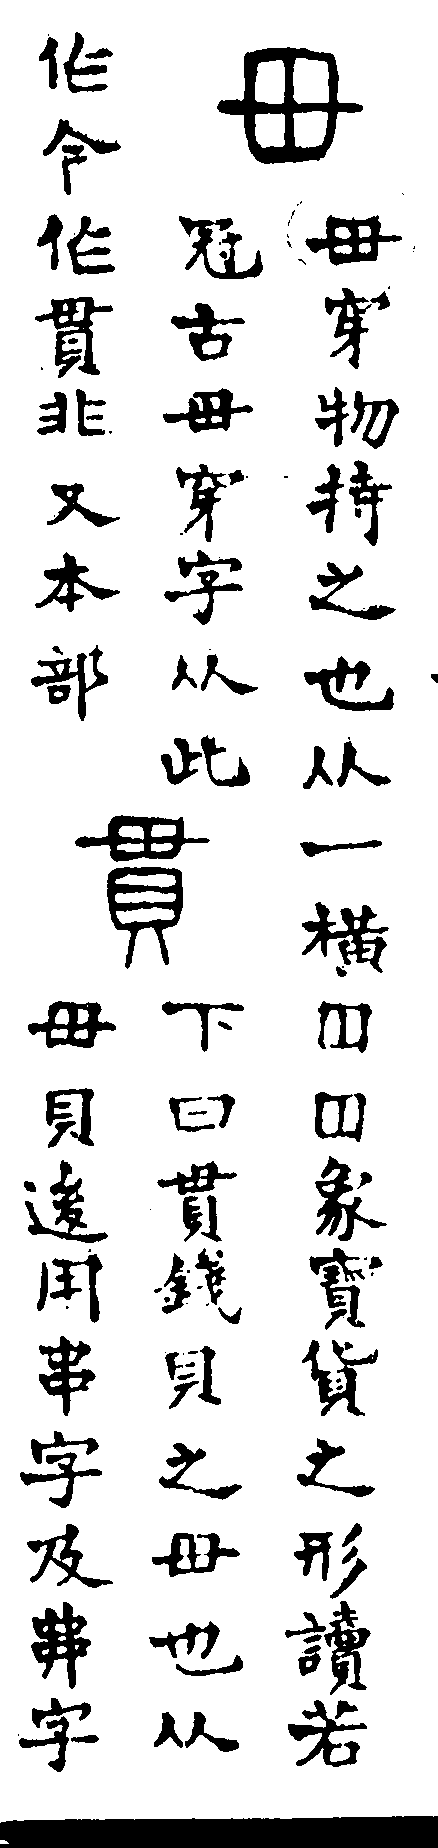 毌
毌穿物持之也从一橫罒罒象寶貨之形讀若
冠古毌穿字从此
作令作貫非又本部
貫
下曰貫錢貝之毌也从
毌貝逡用串字及字